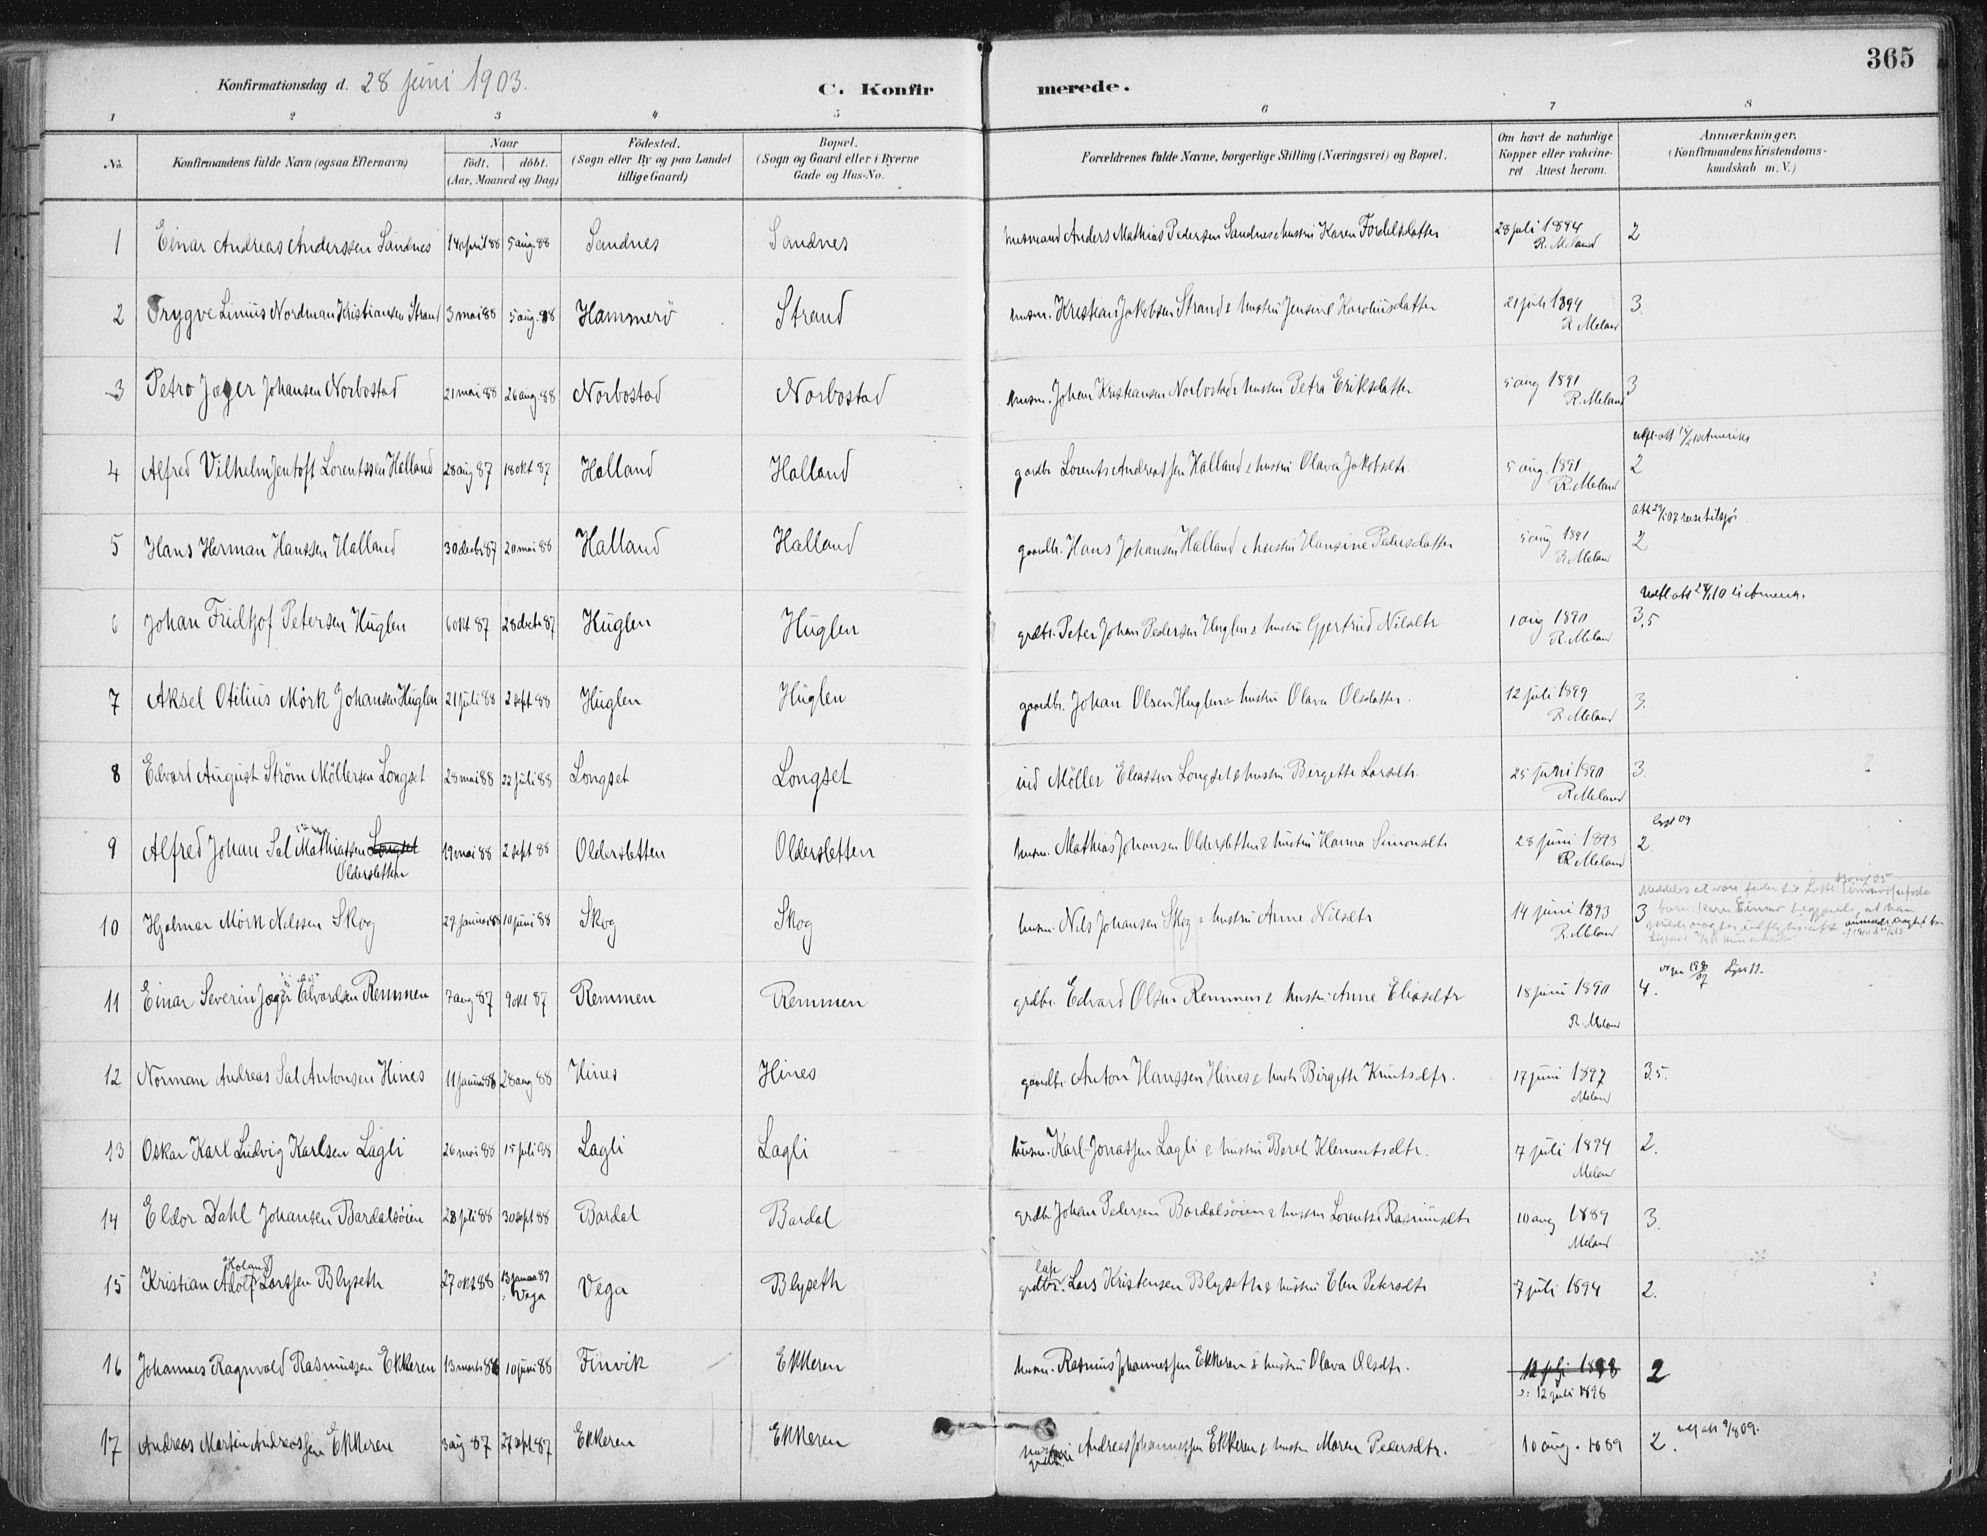 365
Konfirmationsdag d. 28 juni 1903.
C. Konfir merede.
1 2 3 4 5 6 7 8
No. Konfirmandens fulde Navn (ogsaa Efternavn) Naar födt. döbt. (Aar, Maaned og Dag) Födested. (Sogn eller By og paa Landet tillige Gaard) Bopæl. (Sogn og Gaard eller i Byerne Gade og Hus-No. Forældrenes fulde Navne, borgerlige Stilling (Næringsvei) og Bopæl. Om havt de naturlige Kopper eller vakcineret Attest herom. Anmærkninger, (Konfirmandens Kristendomskundskab m. V.)
1 Einar Andreas Anderssen Sandnes 14 april 88 5 aug. 88 Sandnes Sandnes husmand Anders Mathias Pedersen Sandnes & hustru Karen Fordelsdatter 28 juli 1894 R. Meland 2
2 Trygve Linius Nordman Kristiansen Strand 3 mai 88 5 aug. 88 Hammerö Strand husm. Kristian Jakobsen Strand & hustru Jensine Karoliusdatter 21 juli 1894 R Meland 3.
3 Petro Jæger Johansen Norbostad 21 mai 88 26 aug. 88 Norbostad Norbostad husm. Johan Kristiansen Norbostad & hustru Petra Eriksdatter 5 aug 1891 R. Meland 3
4 Alfred Vilhelm Jentoft Lorentssen Halland 28 aug 87 18 okt 87 Halland Halland gaardbr Lorents Andreassen Halland & hustru Olava Jakobsdtr 5 aug. 1891 R. Meland 2
5 Hans Herman Hanssen Halland 30 decbr 87 20 mai 88 Halland Halland gaardbr. Hans Johansen Halland & hustru Hansine Pedersdatter 5 aug 1891 R. Meland 2
6 Johan Fridtjof Petersen Huglen 6 okt 87 28 decbr 87 Huglen Huglen grdbr. Peter Johan Pedersen Huglen & hustru Gjertrud Nilsdtr 1 aug 1890 R. Meland 3,5
7 Aksel Otelius Mörk Johansen Huglen 21 juli 88 2 sept 88 Huglen Huglen gaardbr. Johan Olsen Huglen & hustru Olava Olsdatter. 12 juli 1899 R. Meland 3.
8 Edvard August Strøm Möllersen Longset 28 mai 88 22 juli 88 Longset Longset ind Møller Eliassen Longset & hustru Bergette Larsdtr. 25 juni 1890 R Meland 3.
9 Alfred Johan Sal Mathiassen Longset Oldersletten 19 mai 88 2 sept 88 Oldersletten Oldersletten husm. Mathias Johansen Oldersletten & hustru Hanna Simonsdtr 28 juni 1893 R. Meland 2.
10 Hjalmar Mörk Nilssen Skog 29 januar 88 10 juni 88 Skog Skog husm. Nils Johansen Skog & hustru Anne Nilsdtr 14 juni 1893 R. Meland 3
11 Einar Severin Jæger Edvardsen Remmen 7 aug 87 9 okt 87 Remmen Remmen grdbr. Edvard Olsen Remmen & hustru Anne Eliasdtr 18 juni 1890 R. Meland 4.
12 Norman Andreas Sal Antonsen Hines 11 januar 88 28 aug 88 Hines Hines gaardbr. Anton Hanssen Hines & hustr Birgette Knutsdtr. 17 juni 1897 Meland 3.5.
13 Oskar Karl Ludvig Karlsen Lagli 26 mai 88 15 juli 88 Lagli Lagli husm. Karl Jonassen Lagli & hustru Beret Klementsdtr. 7 juli 1894 Meland 2.
14 Eldor Dahl Johansen Bardalsöien 28 juli 88 30 sept 88 Bardal Bardal grdbr Johan Pedersen Bardalsöien & hustru Lorentse Rasmusdtr 10 aug 1889 Meland 3.
15 Kristian Adolf Larssen Blyseth 27 okt 88 13 januar 89 Vega Vega Blyseth grdbr. Lars Kristensen Blyseth & hustru Elen Petersdtr 7 juli 1894 2.
16 Johannes Ragnvald Rasmussen Ekkeren 13 marts 88 10 juni 88 Finvik Ekkeren husm. Rasmus Johannessen Ekkeren & hustru Olava Olsdtr. 12 juli 1898 2
17 Andreas Martin Andreassen Ekkeren 3 aug 87 27 sept 87 Ekkeren Ekkeren Andreas Johannessen Ekkeren & hustru Maren Pedersdtr. 10 aug. 1889 2.